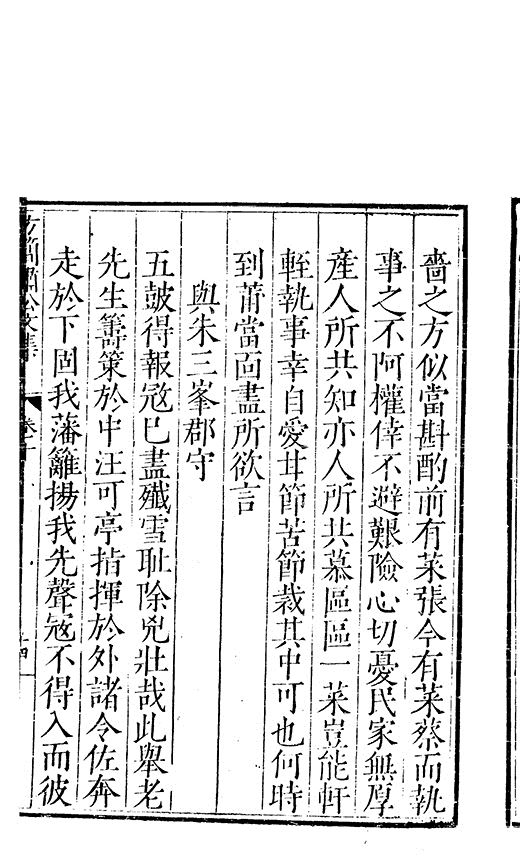 嗇之方似當斟酌前有菜張今有菜蔡而執
事之不阿權倖不避艱險心切憂民家無厚
產人所共知亦人所共慕區區一菜豈能軒
輊執事幸自愛甘節苦節裁其中可也何時
到莆當面盡所欲言
與朱三峯郡守
五鼓得報寇已盡殲雪耻除兇壯哉此舉老
先生籌策於中汪可亭指揮於外諸令佐奔
走於下固我藩籬揚我先聲寇不得入而彼
方簡肅公文集
卷十
十四